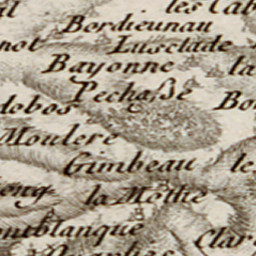 les Cab
Bordieunau
not Lusclade
Bayonne la
Pechasse Bo
dobos
Mouleré
Gimbeau le
long la Mothe
ontblanque
Clar